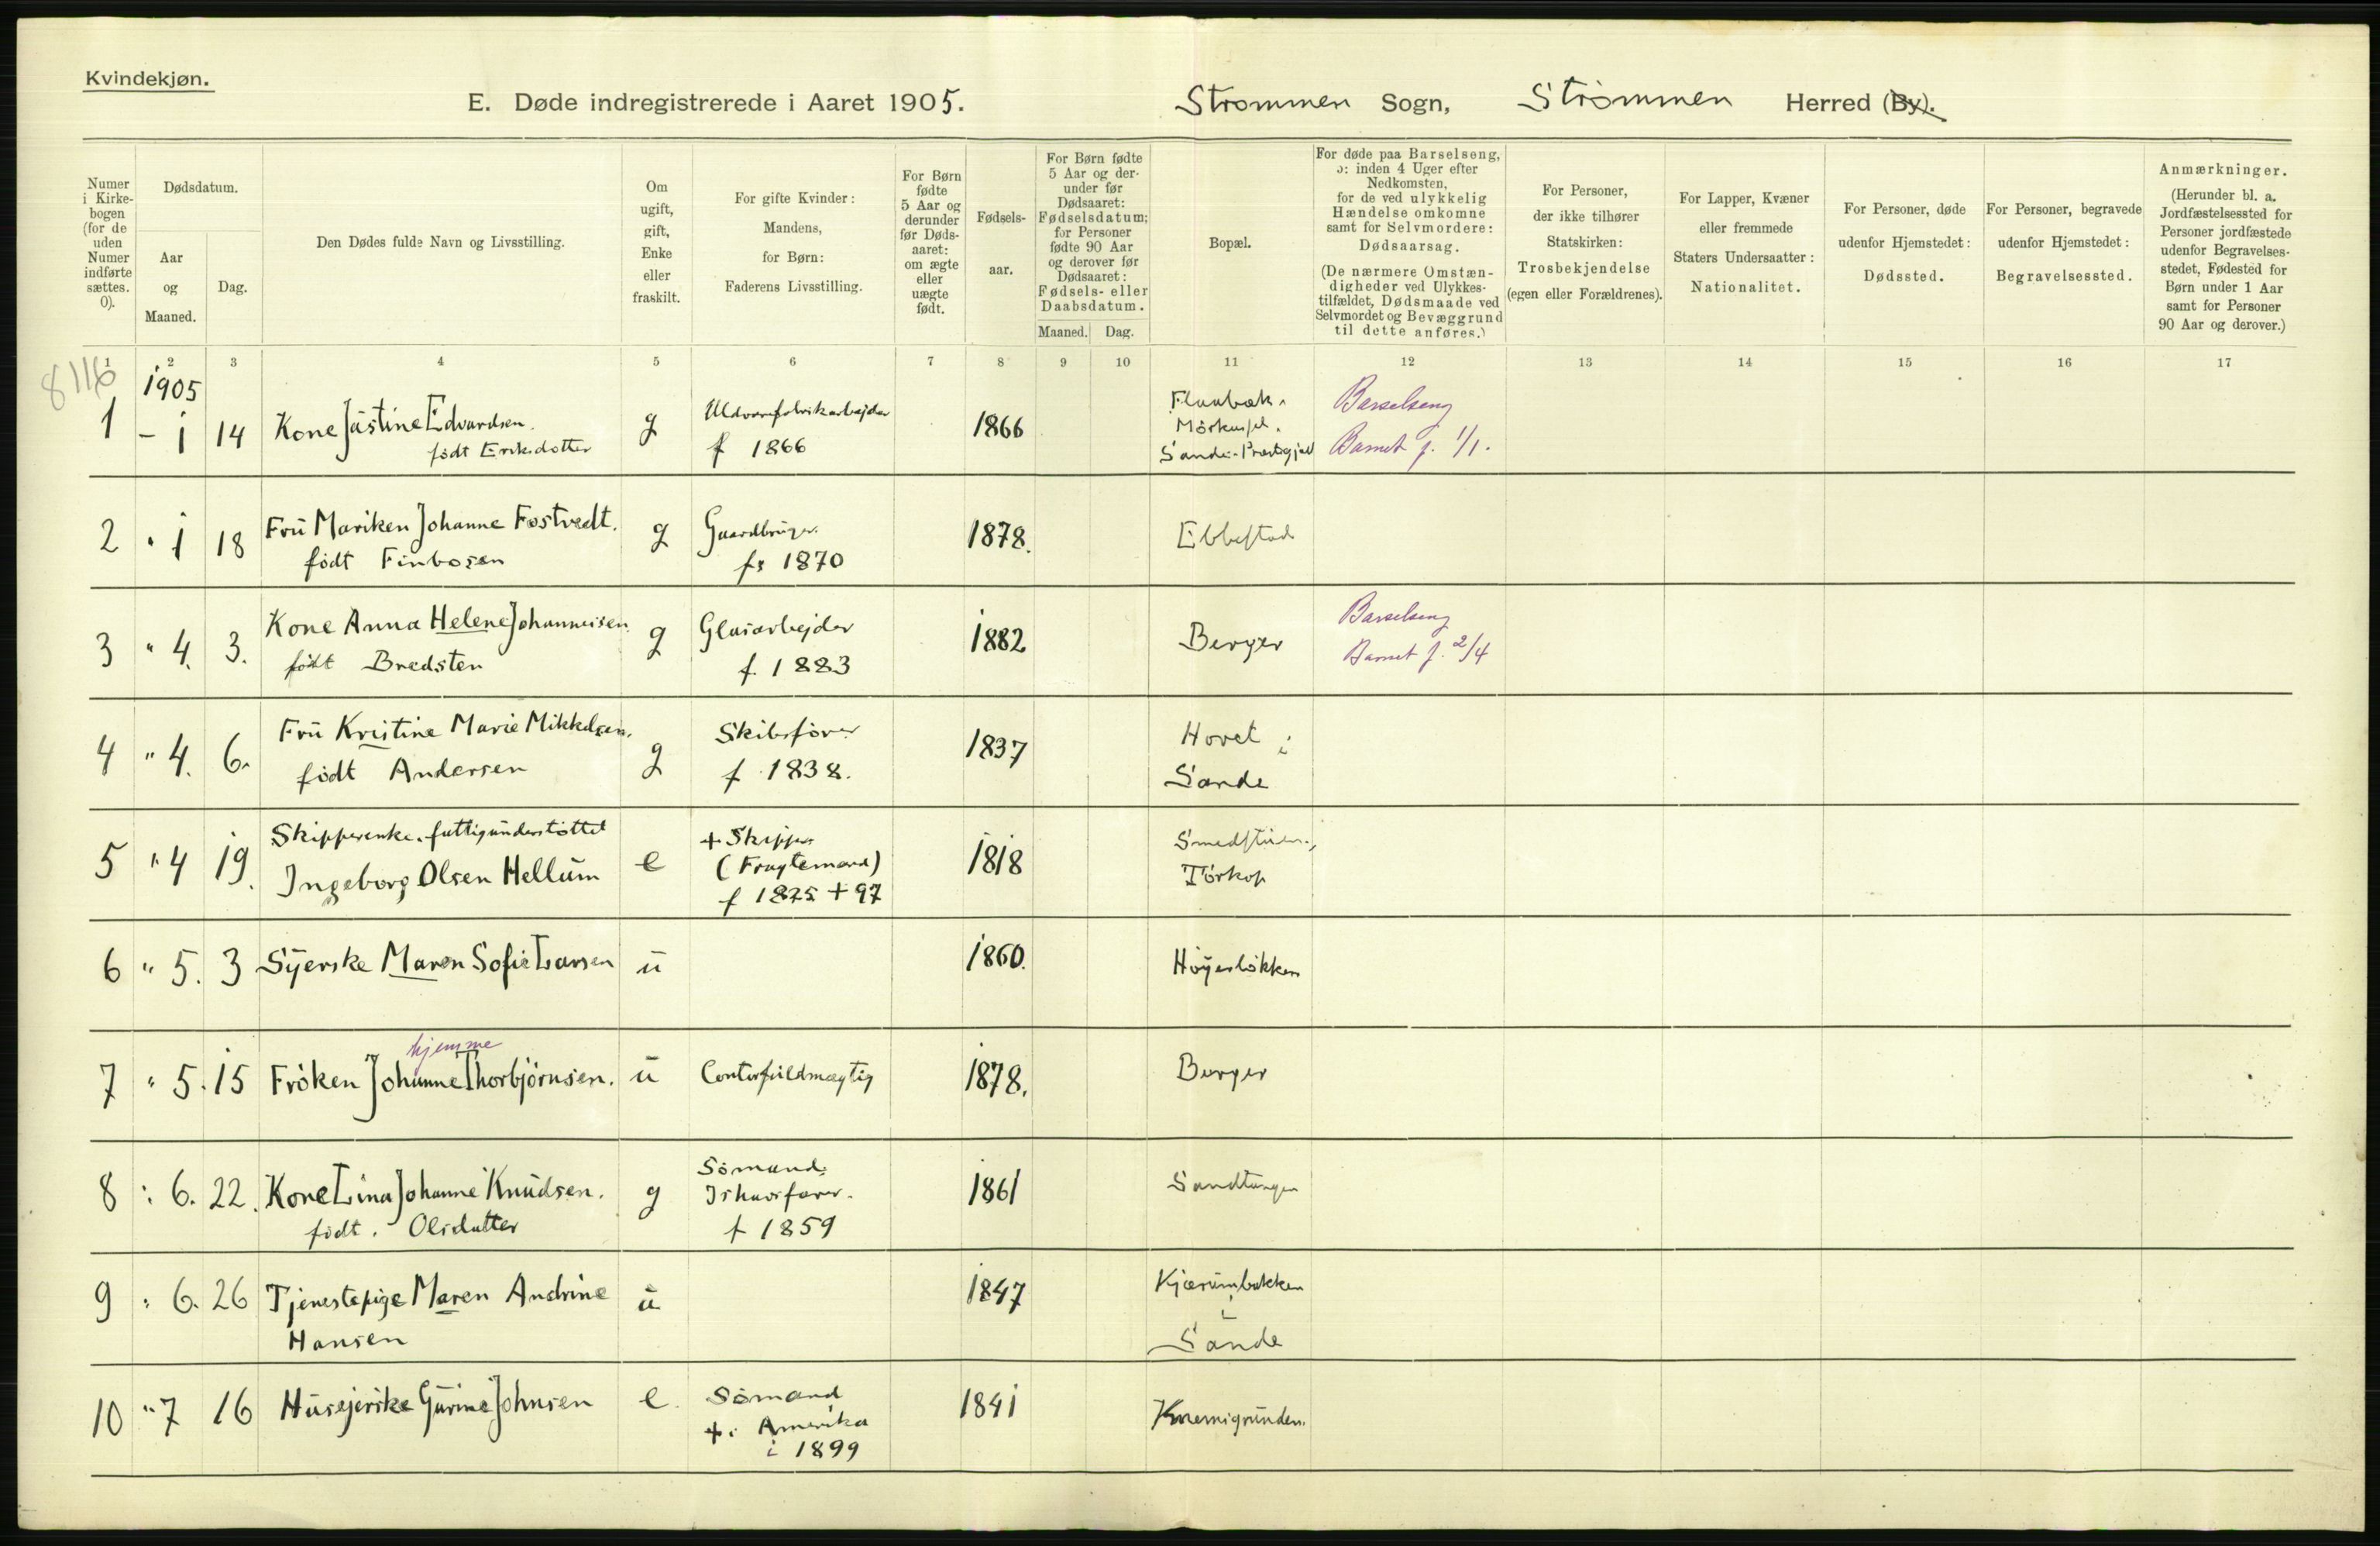 Kvindekjøn.
E. Døde indregistrerede i Aaret 1905.
Strømmen Sogn, Strömmen Herred (By).
Numer
i Kirke-
bogen
(for de
uden
Numer
indførte
sættes.
0).
Dødsdatum.
Aar
og
Maaned.
Dag.
Den Dødes fulde Navn og Livsstilling.
Om
ugift,
gift,
Enke
eller
fraskilt.
For gifte Kvinder:
Mandens,
for Børn:
Faderens Livsstilling.
For Børn
fødte
5 Aar og
derunder
før Døds-
aaret:
om ægte
eller
uægte
født.
Fødsels-
aar.
For Børn fødte
5 Aar og der-
under før
Dødsaaret:
Fødselsdatum;
for Personer
fødte 90 Aar
og derover før
Dødsaaret:
Fødsels- eller
Daabsdatum.
Maaned. Dag.
Bopæl.
For døde paa Barselseng,
ɔ: inden 4 Uger efter
Nedkomsten,
for de ved ulykkelig
Hændelse omkomne
samt for Selvmordere:
Dødsaarsag.
(De nærmere Omstæn-
digheder ved Ulykkes-
tilfældet, Dødsmaade ved
Selvmordet og Bevæggrund
til dette anføres.)
For Personer,
der ikke tilhører
Statskirken:
Trosbekjendelse
(egen eller Forældrenes).
For Lapper, Kvæner
eller fremmede
Staters Undersaatter:
Nationalitet.
For Personer, døde
udenfor Hjemstedet:
Dødssted.
For Personer, begravede
udenfor Hjemstedet:
Begravelsessted.
Anmærkninger.
(Herunder bl. a.
Jordfæstelsessted for
Personer jordfæstede
udenfor Begravelses-
stedet, Fødested for
Børn under 1 Aar
samt for Personer
90 Aar og derover.)
1 2 3 4 5 6 7 8 9 10 11 12 13 14 15 16 17
8116
1905
1 - 1 14 Kone Justine Edvardsen.
födt Eriksdotter
g
Uldvarefabrikarbejder
f 1866
1866
Sande-Præstegjæld
Barselseng
Barnet f. 1/1.
2 " 1 18 Frú Mariken Johanne Fostvedt.
födt Finbosen
g
Gaardbruger.
f. 1870
1878.
Ebbestad
3 " 4. 3. Kone Anna Helene Johannesen
födt Bredsten
g
Glasarbejder
f. 1883
1882
Berger
Barselseng
Barnet f. 2/4
4 " 4. 6. Frú Kristine Marie Mikkelsen.
födt Andersen
g
Skibsförer
f 1838.
1837
Hovet i
Sande
5 " 4 19. Skipperenke. fattigunderstöttet
Ingeborg Olsen Hellum
e
+ Skipper
(Fragtemand)
f 1825 + 97
1818
Smedstuen.
Törkop
6 " 5. 3 Syerske Maren Sofie Larsen u 1860. Höyeslökken
hjemme
7 " 5. 15 Fröken Johanne Thorbjörnsen. u Contorfuldmægtig 1878. Berger
8 " 6. 22. Kone Lina Johanne Knudsen.
födt. Olsdatter
g
Sömand.
Ishavsfarer.
f 1859
1861
Sandtangen
9 " 6. 26 Tjenestepige Maren Andrine
Hansen
u
1847
Kjærumbakken
i
Sande
10 " 7 16 Husejerske Gurine Johnsen
e.
Sömand
+ i Amerika
i 1899
1841